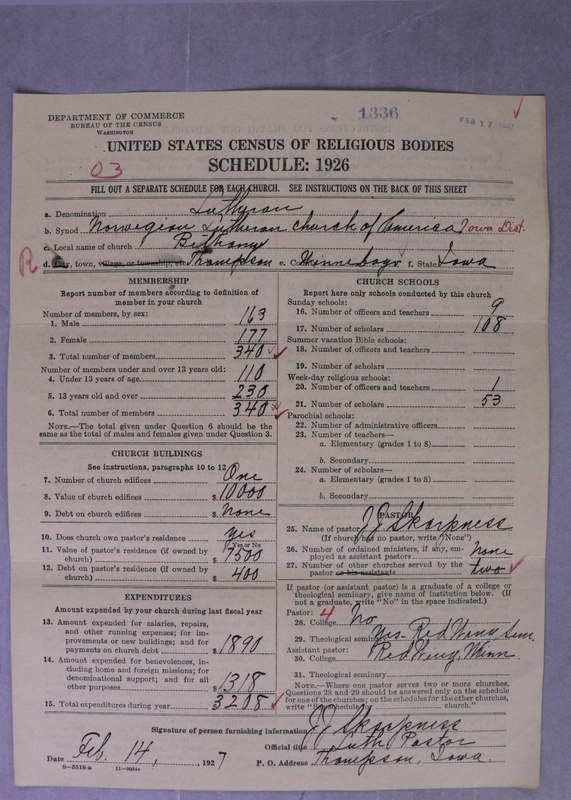 DEPARTMENT OF COMMERCE
BUREAU OF THE CENSUS
WASHINGTON
1336
FEB 17 1927
UNITED STATES CENSUS OF RELIGIOUS BODIES
03
SCHEDULE: 1926
FILL OUT A SEPARATE SCHEDULE FOR EACH CHURCH. SEE INSTRUCTIONS ON THE BACK OF THIS SHEET
a. Denomination Lutheran
b. Synod Norwegian Lutheran Church of America Iowa Dist.
c. Local name of church Bethany
R d. City, town, village, or township, etc. Thompson e. Co. Winnebago f. State Iowa
MEMBERSHIP
Report number of members according to definition of
member in your church
Number of members, by sex:
1. Male 163
2. Female 177
3. Total number of members 340
Number of members under and over 13 years old:
4. Under 13 years of age 110
5. 13 years old and over 230
6. Total number of members 340
NOTE.—The total given under Question 6 should be the
same as the total of males and females given under Question 3.
CHURCH BUILDINGS
See instructions, paragraphs 10 to 12
7. Number of church edifices One
8. Value of church edifices $10000
9. Debt on church edifices $None
10. Does church own pastor's residence yes
Yes or No
11. Value of pastor's residence (if owned by
church) $7500
12. Debt on pastor's residence (if owned by
church) $400
EXPENDITURES
Amount expended by your church during last fiscal year
13. Amount expended for salaries, repairs,
and other running expenses; for im-
provements or new buildings; and for
payments on church debt $1890
14. Amount expended for benevolences, in-
cluding home and foreign missions; for
denominational support; and for all
other purposes $1318
15. Total expenditures during year $3208
CHURCH SCHOOLS
Report here only schools conducted by this church
Sunday schools:
16. Number of officers and teachers 9
17. Number of scholars 108
Summer vacation Bible schools:
18. Number of officers and teachers
19. Number of scholars
Week-day religious schools:
20. Number of officers and teachers 1
21. Number of scholars 53
Parochial schools:
22. Number of administrative officers
23. Number of teachers—
a. Elementary (grades 1 to 8)
b. Secondary
24. Number of scholars—
a. Elementary (grades 1 to 8)
b. Secondary
PASTOR
25. Name of pastor J J Skarpness
(If church has no pastor, write "None")
26. Number of ordained ministers, if any, em-
ployed as assistant pastors None
27. Number of other churches served by the
pastor or his assistants two
If pastor (or assistant pastor) is a graduate of a college or
theological seminary, give name of institution below. (If
not a graduate, write "No" in the space indicated.)
Pastor: 4
28. College No
29. Theological seminary Yes- Red Wing Sem.
Assistant pastor: Red Wing, Minn.
30. College
31. Theological seminary
NOTE.—Where one pastor serves two or more churches,
Questions 28 and 29 should be answered only on the schedule
for one of the churches; on the schedules for the other churches,
write "See schedule for church."
Signature of person furnishing information J J Skarpness
Official title Luth Pastor
Date Feb. 14, 1927 P. O. Address Thompson, Iowa
8—5518a